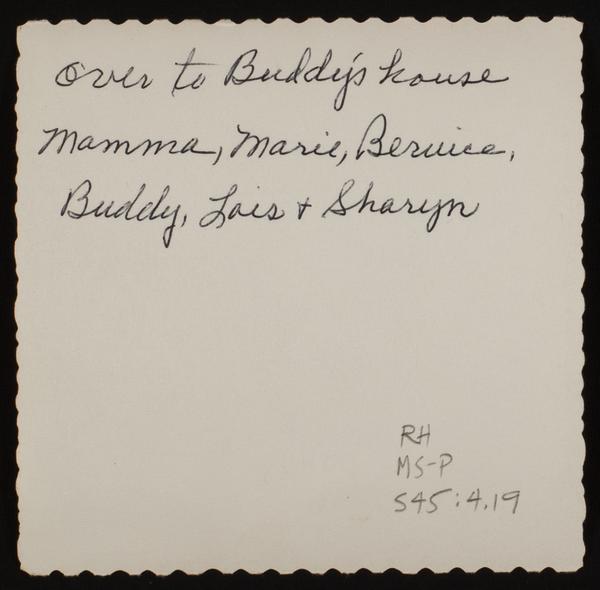 Over to Buddy's house
Mamma, Marie, Bernice,
Buddy, Lois + Sharyn
RH
MS-P
545:4.19